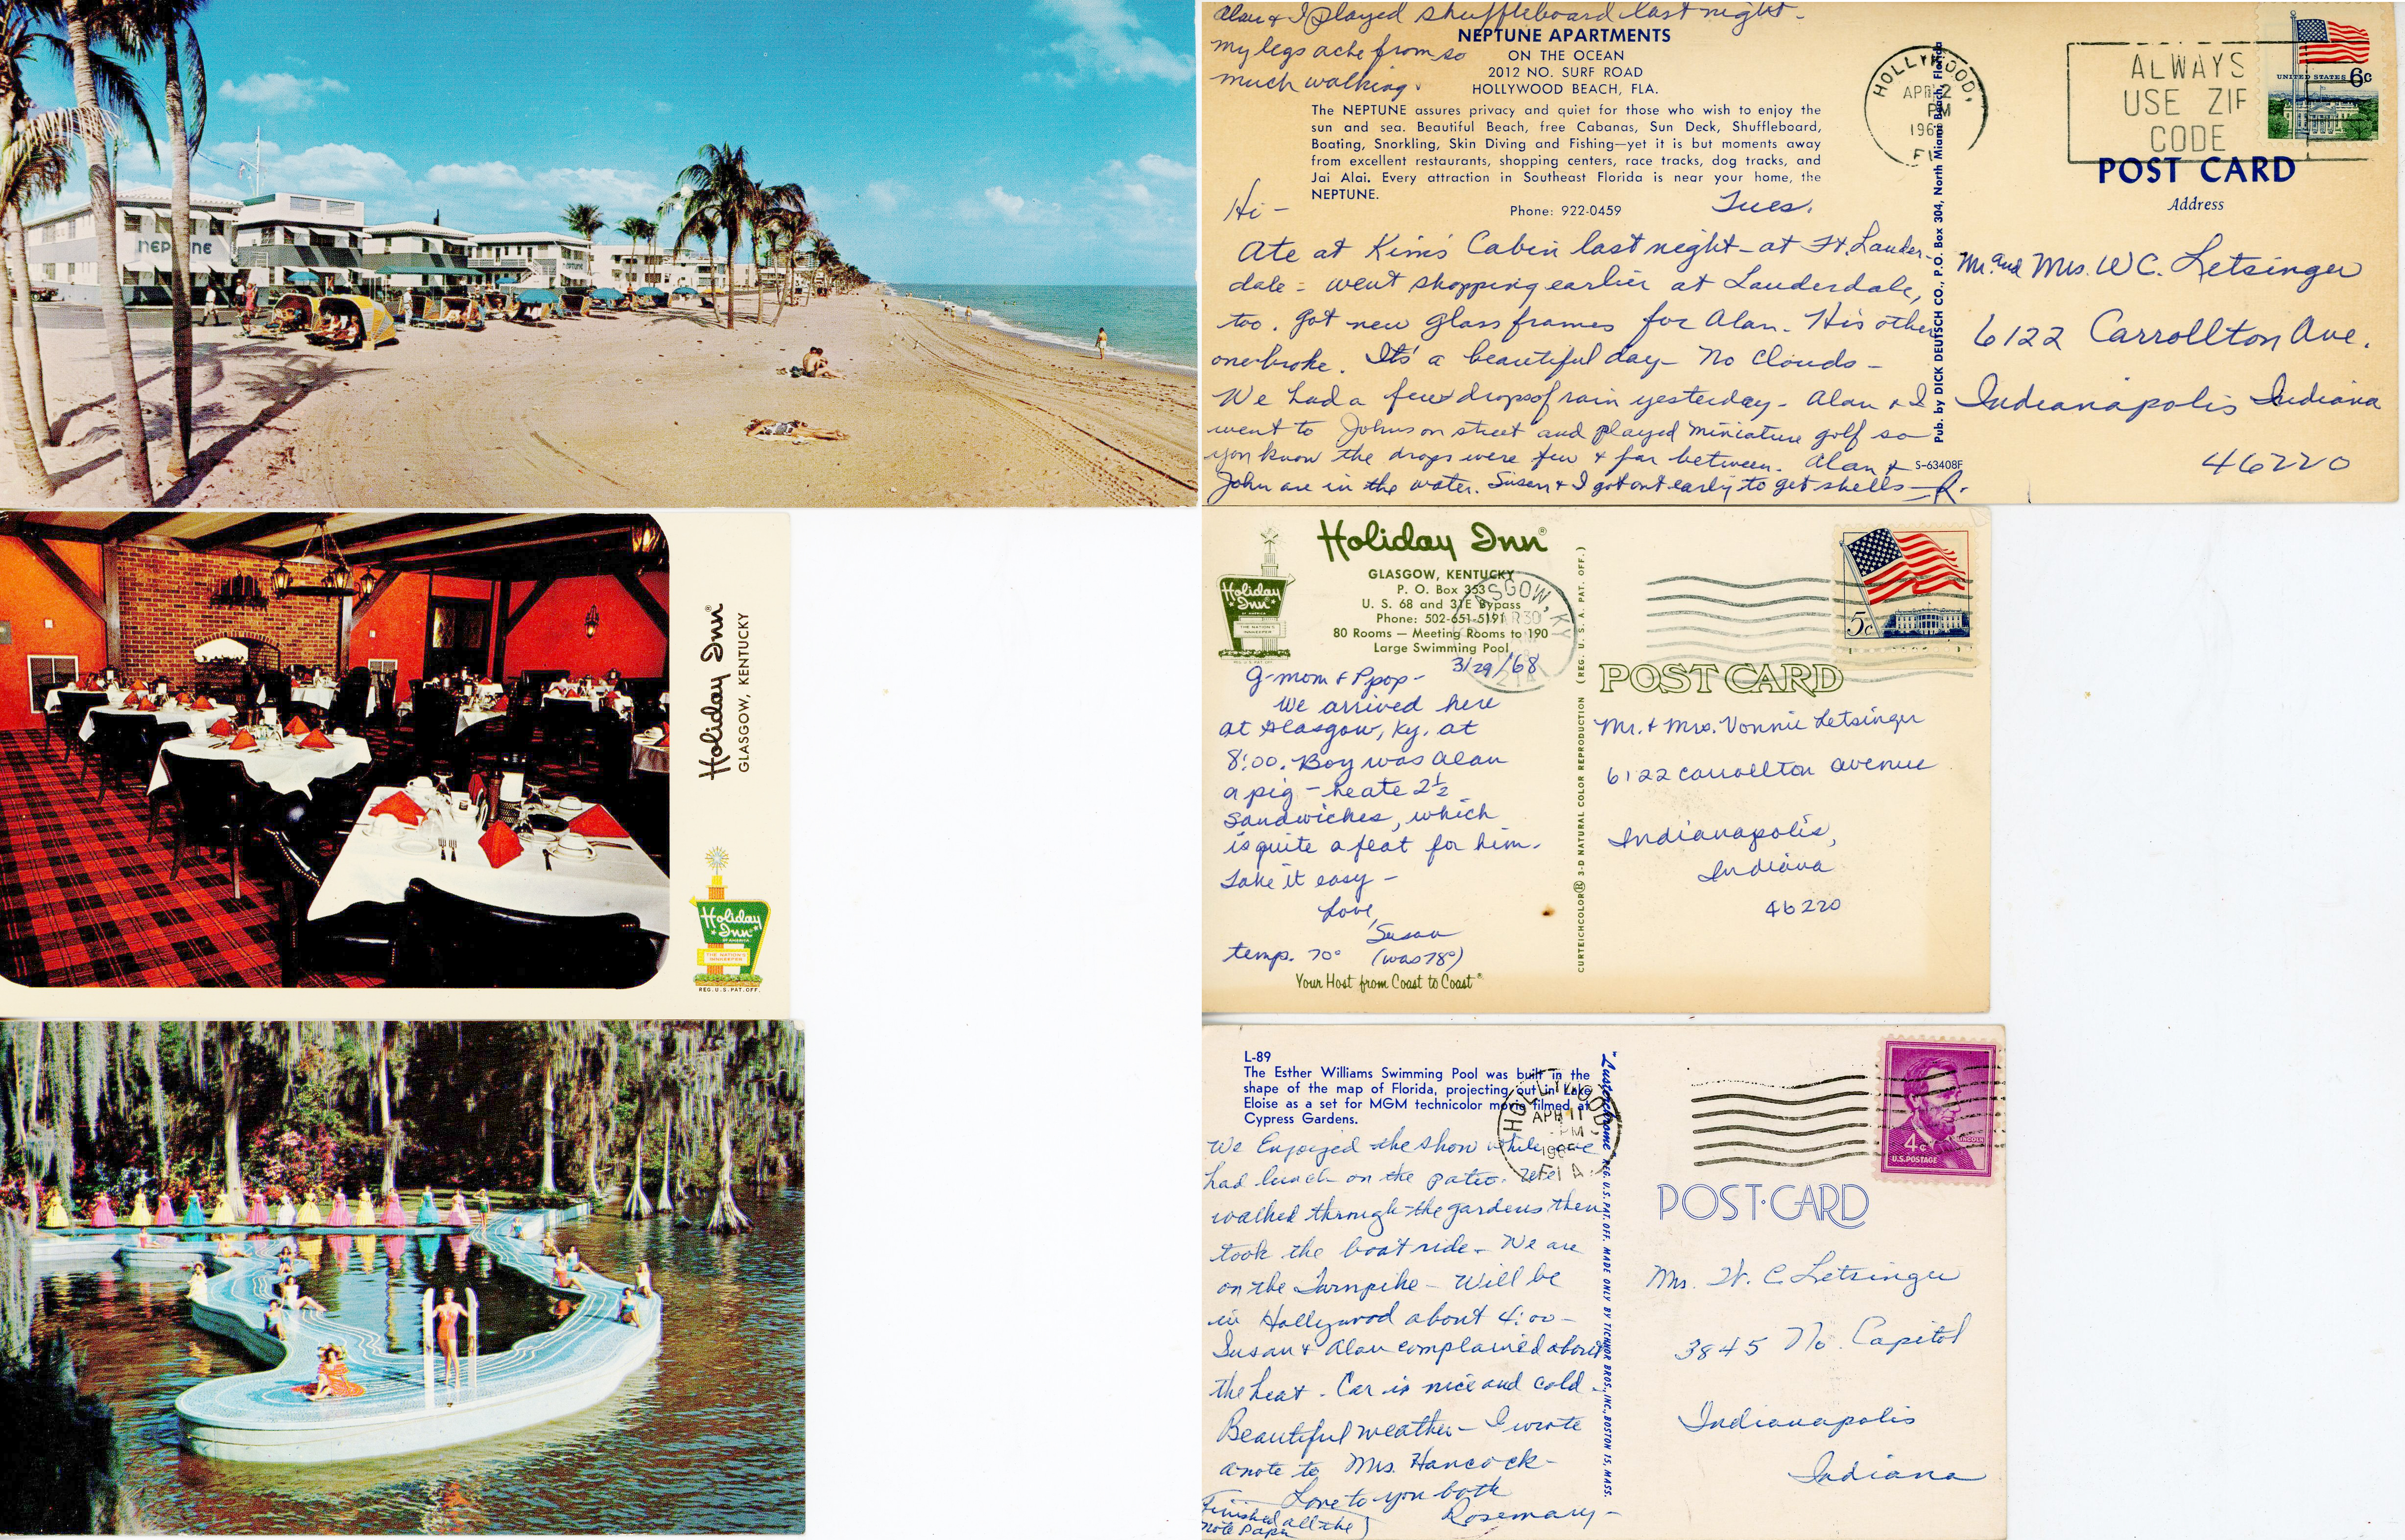 NEPTUNE
NEPTUNE
Alan & I played shuffleboard last night.
my legs ache from so
much walking.
NEPTUNE APARTMENTS
ON THE OCEAN
2012 NO. SURF ROAD
HOLLYWOOD BEACH, FLA.
The NEPTUNE assures privacy and quiet for those who wish to enjoy the
sun and sea. Beautiful Beach, free Cabanas, Sun Deck, Shuffleboard,
Boating, Snorkling, Skin Diving and Fishing—yet it is but moments away
from excellent restaurants, shopping centers, race tracks, dog tracks, and
Jai Alai. Every attraction in Southeast Florida is near your home, the
NEPTUNE.
Phone: 922-0459
Hi - Tues.
Ate at Kim's Cabin last night - at Ft. Lauder-
dale - went shopping earlier at Lauderdale,
too. Got new glass frames for Alan. His other
one broke. It's a beautiful day - No clouds -
We had a few drops of rain yesterday - Alan & I
went to Johnson street and played miniature golf so
you know the drops were few & far between. Alan &
John are in the water. Susan & I got out early to get shells - R.
S-63408F
Pub. by DICK DEUTSCH CO., P.O. Box 304, North Miami Beach, Florida
HOLLYWOOD,
APR 2
PM
196
FL
ALWAYS
USE ZIP
CODE
UNITED STATES 6c
POST CARD
Address
Mr. and Mrs. W C. Letsinger
6122 Carrollton Ave.
Indianapolis Indiana
46220
Holiday Inn®
GLASGOW, KENTUCKY
Holiday
Inn
OF AMERICA
THE NATION'S
INNKEEPER
REG. U.S. PAT. OFF.
Holiday Inn®
Holiday
Inn
OF AMERICA
THE NATION'S
INNKEEPER
REG. U.S. PAT. OFF.
GLASGOW, KENTUCKY
P. O. Box 353
U. S. 68 and 31E Bypass
Phone: 502-651-5191
80 Rooms — Meeting Rooms to 190
Large Swimming Pool
GLASGOW, KY
MAR 30
3/29/'68
G-mom & Ppop -
We arrived here
at Glasgow, Ky. at
8:00. Boy was Alan
a pig - he ate 2½
sandwiches, which
is quite a feat for him.
Take it easy -
Love,
Susan
temp. 70° (was 78°)
Your Host from Coast to Coast®
CURTEICHCOLOR® 3-D NATURAL COLOR REPRODUCTION (REG. U. S. A. PAT. OFF.)
5c
POST CARD
Mr. & Mrs. Vonnie Letsinger
6122 Carrollton Avenue
Indianapolis,
Indiana
46220
L-89
The Esther Williams Swimming Pool was built in the
shape of the map of Florida, projecting out in Lake
Eloise as a set for MGM technicolor movie filmed at
Cypress Gardens.
HOLLYWOOD,
APR 11
PM
196
FLA.
We Enjoyed the show while we
had lunch on the patio. We
walked through the gardens then
took the boat ride - We are
on the Turnpike - Will be
in Hollywood about 4:00 -
Susan & Alan complained about
the heat. Car is nice and cold.
Beautiful weather - I wrote
a note to Mrs. Hancock -
Love to you both
Rosemary -
Finished all the
note paper
"Lusterchrome" REG. U.S. PAT. OFF. MADE ONLY BY TICHNOR BROS., INC., BOSTON 15, MASS.
4c
LINCOLN
U.S. POSTAGE
POST CARD
Mrs. W. C Letsinger
3845 No. Capitol
Indianapolis
Indiana